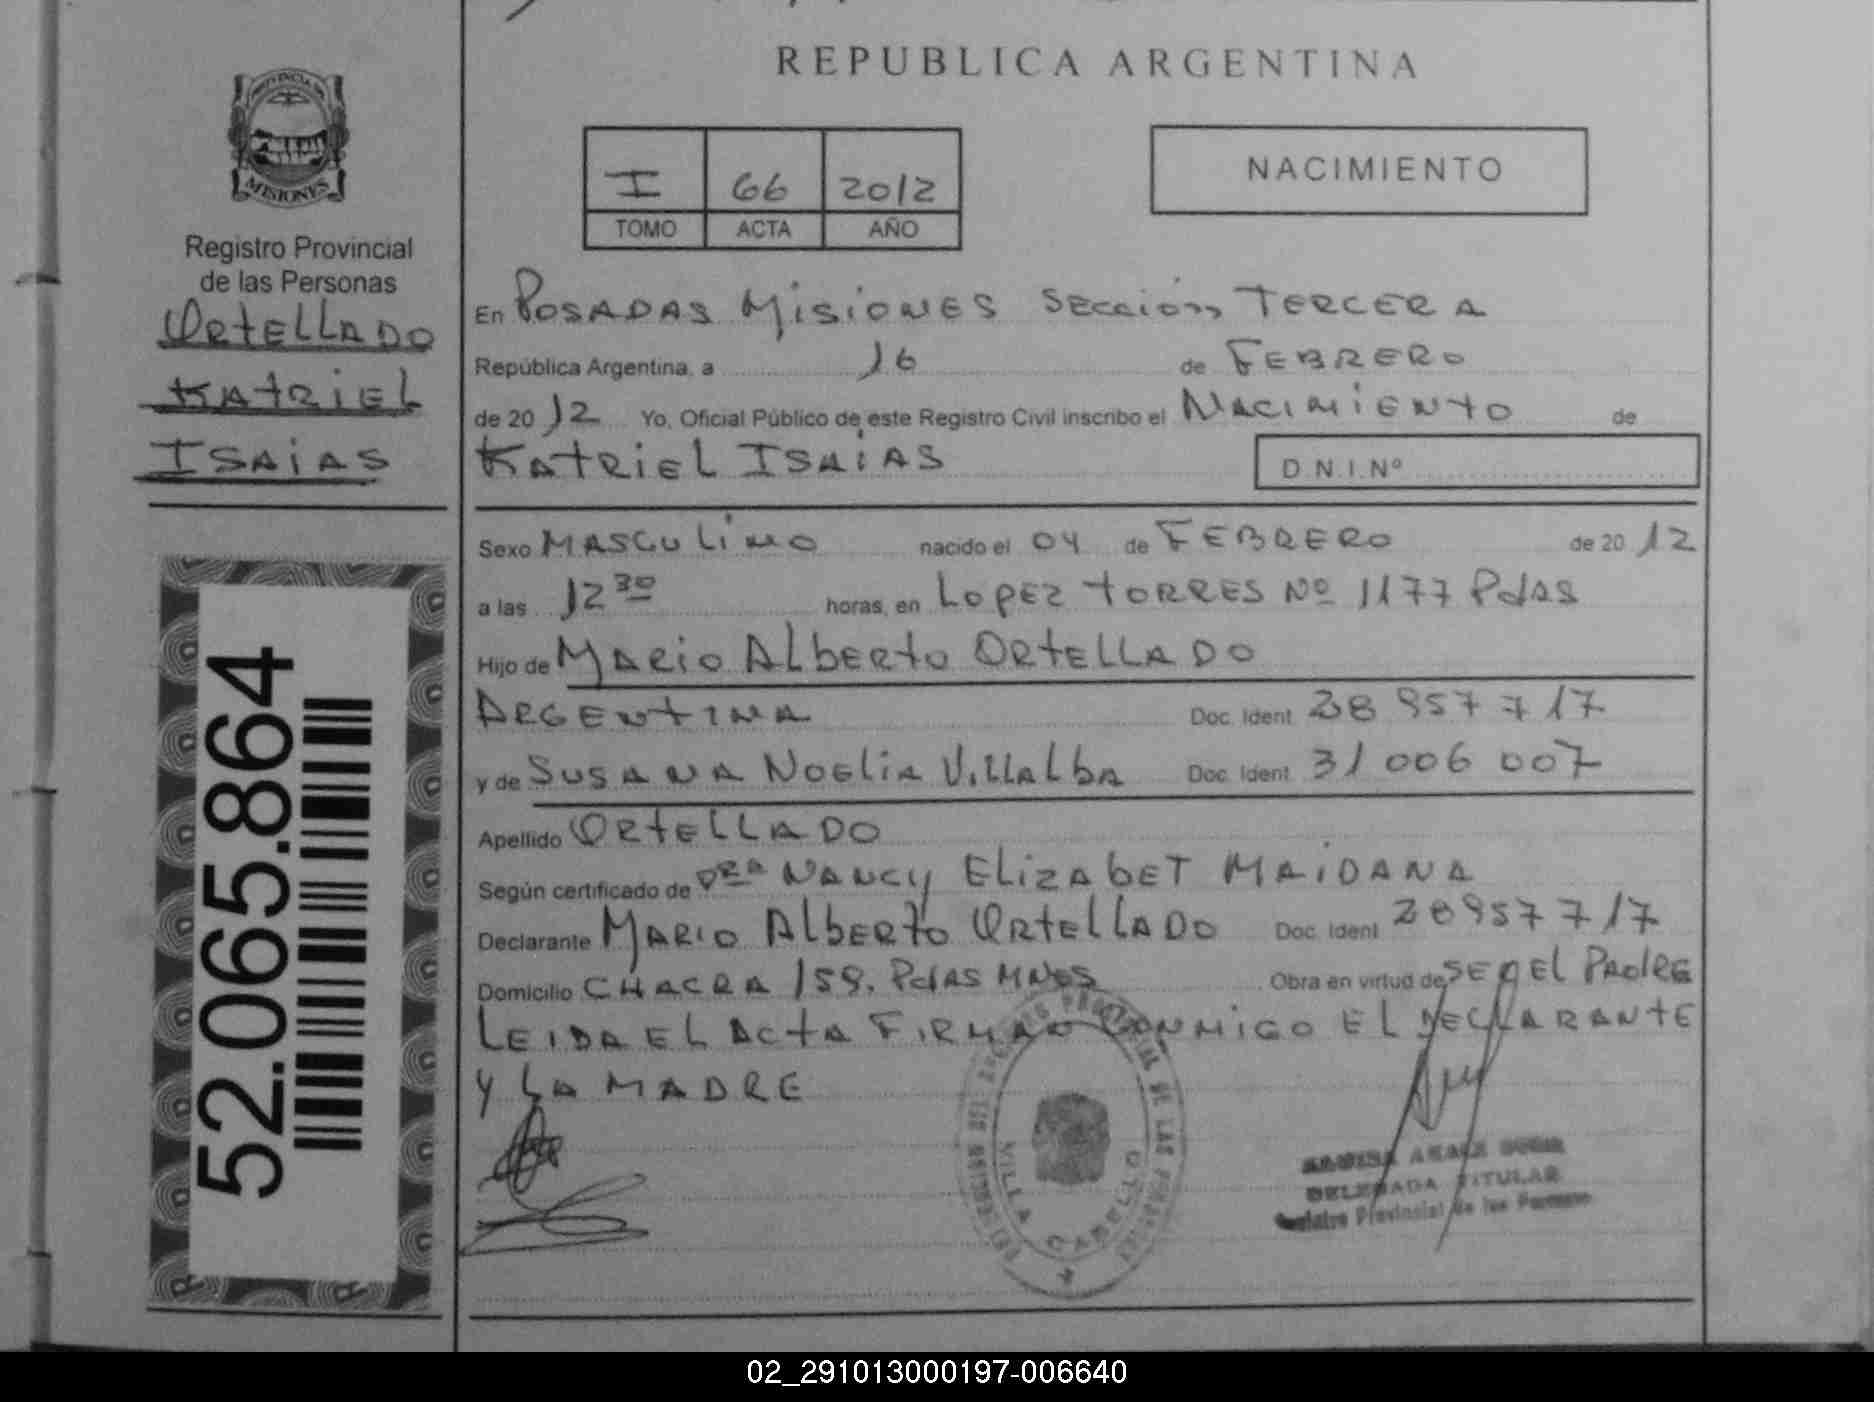 REPUBLICA ARGENTINA
PROVINCIA DE
MISIONES
Registro Provincial
de las Personas
ORTELLADO
KATRIEL
ISAIAS
52.065.864
I 66 2012
TOMO ACTA AÑO
NACIMIENTO
En POSADAS MISIONES SECCIÓN TERCERA
República Argentina, a 16 de FEBRERO
de 20 12 Yo, Oficial Público de este Registro Civil inscribo el NACIMIENTO de
KATRIEL ISAIAS D.N.I.Nº
Sexo MASCULINO nacido el 04 de FEBRERO de 20 12
a las 12 30 horas, en LOPEZ TORRES Nº 1177 PDAS
Hijo de MARIO ALBERTO ORTELLADO
ARGENTINA Doc. Ident 28 957 717
y de SUSANA NOELIA VILLALBA Doc. Ident 31 006 007
Apellido ORTELLADO
Según certificado de DRA NANCY ELIZABET MAIDANA
Declarante MARIO ALBERTO ORTELLADO Doc. Ident 28957717
Domicilio CHACRA 159. PDAS MNES Obra en virtud de SER EL PADRE
LEIDA EL ACTA FIRMAN CONMIGO EL DECLARANTE
Y LA MADRE
REGISTRO PROVINCIAL DE LAS PERSONAS
VILLA CABELLO
DELEGADA TITULAR
Registro Provincial de las Personas
02_291013000197-006640